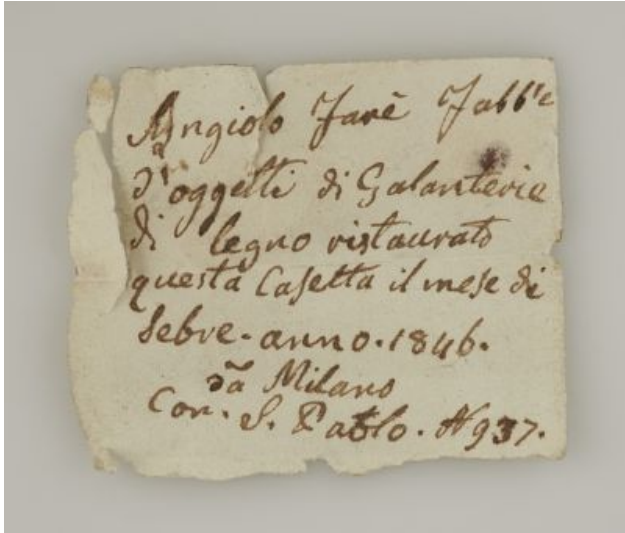 Angiolo Farè Fabb.e
d'oggetti di Galanterie
di legno ristaurato
questa Casetta il mese di
Sebre. anno. 1846.
da Milano
Cor. S. Paolo. N 937.